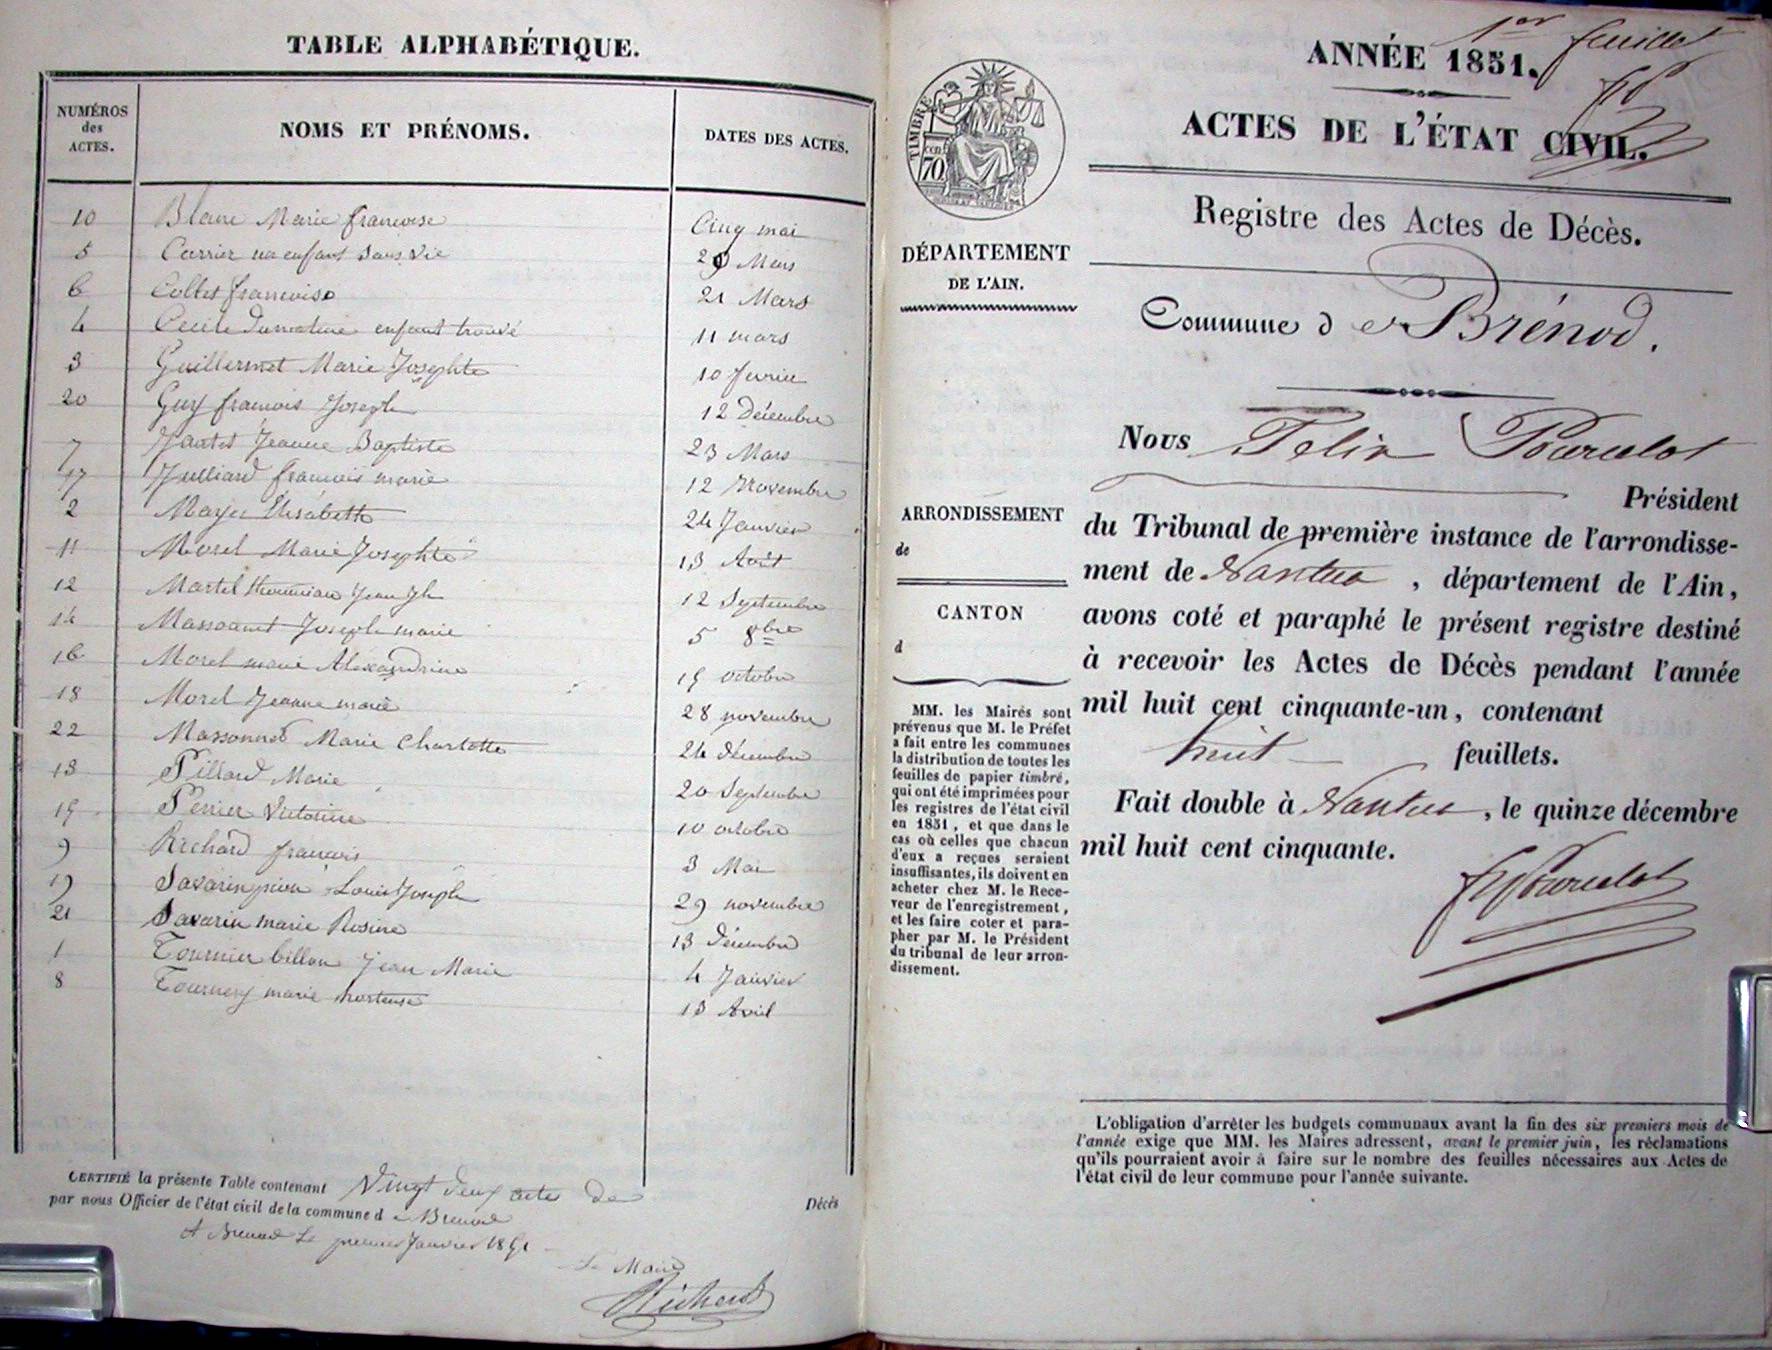 TABLE ALPHABÉTIQUE.
NUMÉROS des ACTES. NOMS ET PRÉNOMS. DATES DES ACTES.
10 Blanc Marie francoise Cinq mai
5 Carrier un enfant sans vie 29 Mars
6 Collet francoise 21 Mars
4 Cecile enfant trouvé 11 mars
3 Guillermet Marie Josephte 10 fevrier
20 Guy francois Joseph 12 Décembre
7 Jantet Jeanne Baptiste 23 Mars
17 Julliard francois marie 12 Novembre
2 Elisabeth 24 Janvier
11 Morel Marie Josephte 13 Août
12 Martel Jean Jh 12 Septembre
14 Massonnet Joseph marie 5 8bre
16 Morel marie Alexandrine 15 octobre
18 Morel Jeanne marie 28 novembre
22 Massonnet Marie Charlotte 24 décembre
13 Pillard Marie 20 Septembre
15 Perrier Victorine 10 octobre
9 Richard francois 3 Mai
19 Savarin Louis Joseph 29 novembre
21 Savarin marie Rosine 13 décembre
1 Tournier billon Jean Marie 4 Janvier
8 Tournery marie hortense 13 Avril
CERTIFIÉ la présente Table contenant Vingt deux actes de Décès
par nous Officier de l'état civil de la commune d e Brenod
A Brenod Le premier Janvier 1851
Le Maire
Richard
1er feuillet
ANNÉE 1851.
ACTES DE L'ÉTAT CIVIL.
TIMBRE
70
Registre des Actes de Décès.
DÉPARTEMENT
DE L'AIN.
Commune d e Brénod.
Nous Felix Pourcelot
Président
ARRONDISSEMENT
de
CANTON
d
du Tribunal de première instance de l'arrondisse-
ment de Nantua, département de l'Ain,
avons coté et paraphé le présent registre destiné
à recevoir les Actes de Décès pendant l'année
mil huit cent cinquante-un, contenant
huit feuillets.
Fait double à Nantua, le quinze décembre
mil huit cent cinquante.
MM. les Maires sont
prévenus que M. le Préfet
a fait entre les communes
la distribution de toutes les
feuilles de papier timbré,
qui ont été imprimées pour
les registres de l'état civil
en 1851, et que dans le
cas où celles que chacun
d'eux a reçues seraient
insuffisantes, ils doivent en
acheter chez M. le Rece-
veur de l'enregistrement,
et les faire coter et para-
pher par M. le Président
du tribunal de leur arron-
dissement.
Pourcelot
L'obligation d'arrêter les budgets communaux avant la fin des six premiers mois de
l'année exige que MM. les Maires adressent, avant le premier juin, les réclamations
qu'ils pourraient avoir à faire sur le nombre des feuilles nécessaires aux Actes de
l'état civil de leur commune pour l'année suivante.